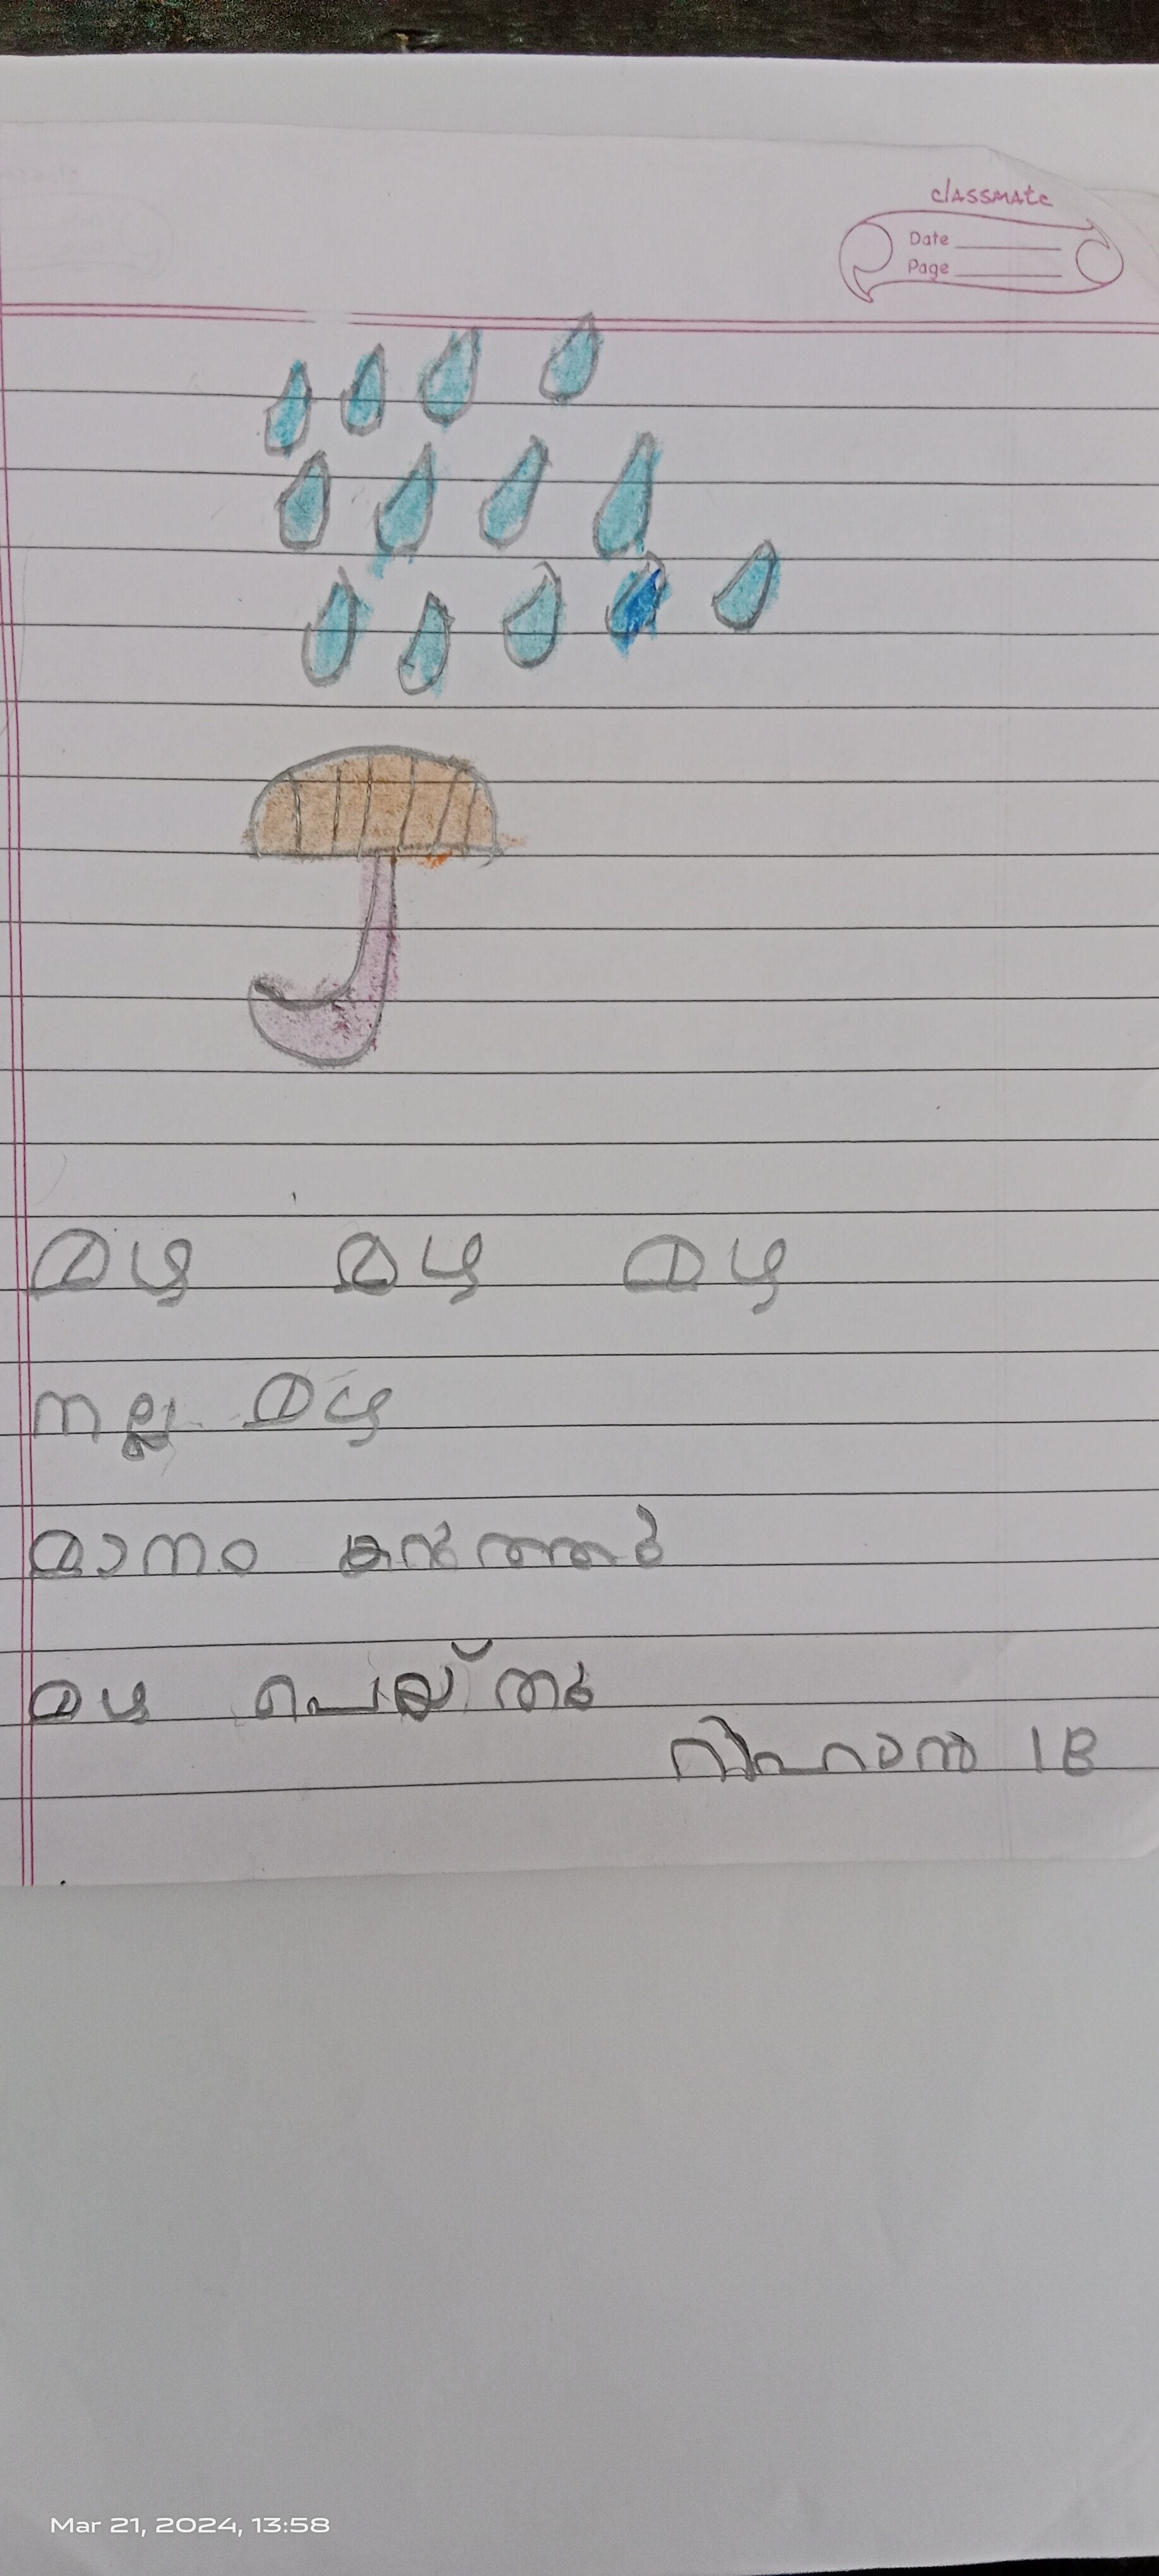 classmate
Date
Page
മഴ മഴ മഴ
നല്ല മഴ
മാനം കറുത്തു
മഴ പെയ്തു
1B
Mar 21, 2024, 13:58